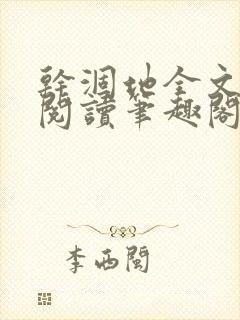 幹涸地全文
閱讀筆趣閣
李西閩